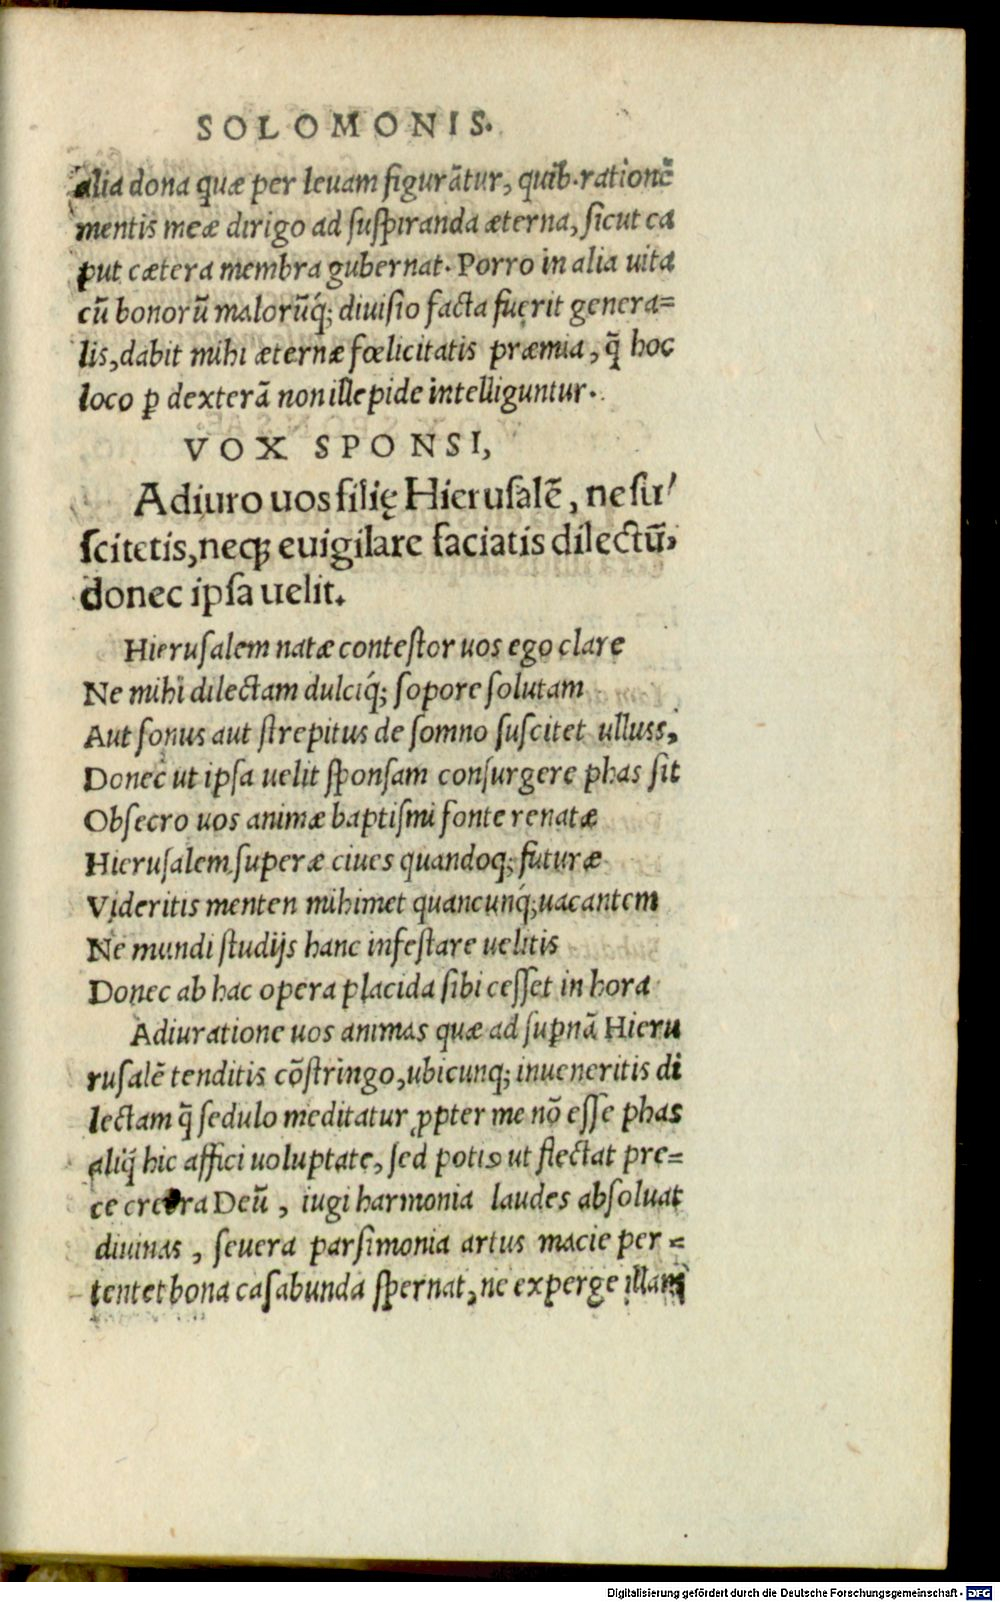 SOLOMONIS.
alia dona quæ per levam figurātur, quib.rationē
mentis meæ dirigo ad suspiranda æterna, sicut ca
put cætera membra gubernat. Porro in alia uita
cū bonorū malorūq́; diuisio facta fuerit genera=
lis, dabit mihi æternæ fœlicitatis præmia, q̄ hoc
loco ꝑ dexterā non illepide intelliguntur.
VOX SPONSI,
Adiuro uos filię Hierusalē, ne su/
scitetis, neqꝫ euigilare faciatis dilectū,
donec ipsa uelit.
Hierusalem natæ contestor uos ego clare
Ne mihi dilectam dulciq́; sopore solutam
Aut sonus aut strepitus de somno suscitet ulluss,
Donec ut ipsa uelit sponsam consurgere phas sit
Obsecro uos animæ baptismi fonte renatæ
Hierusalem superæ ciues quandoq; futuræ
Videritis menten mihimet quancunq́; uacantem
Ne mundi studijs hanc infestare uelitis
Donec ab hac opera placida sibi cesset in hora
Adiuratione uos animas quæ ad supnā Hieru
rusalē tenditis cōstringo, ubicunq; inueneritis di
lectam q̄ sedulo meditatur ꝓpter me nō esse phas
aliq́ hic affici uoluptate, sed potiꝰ ut flectat pre=
ce crebra Deū, iugi harmonia laudes absoluat
diuinas, seuera parsimonia artus macie per=
tentet bona casabunda spernat, ne experge illam
Digitalisierung gefördert durch die Deutsche Forschungsgemeinschaft - DFG